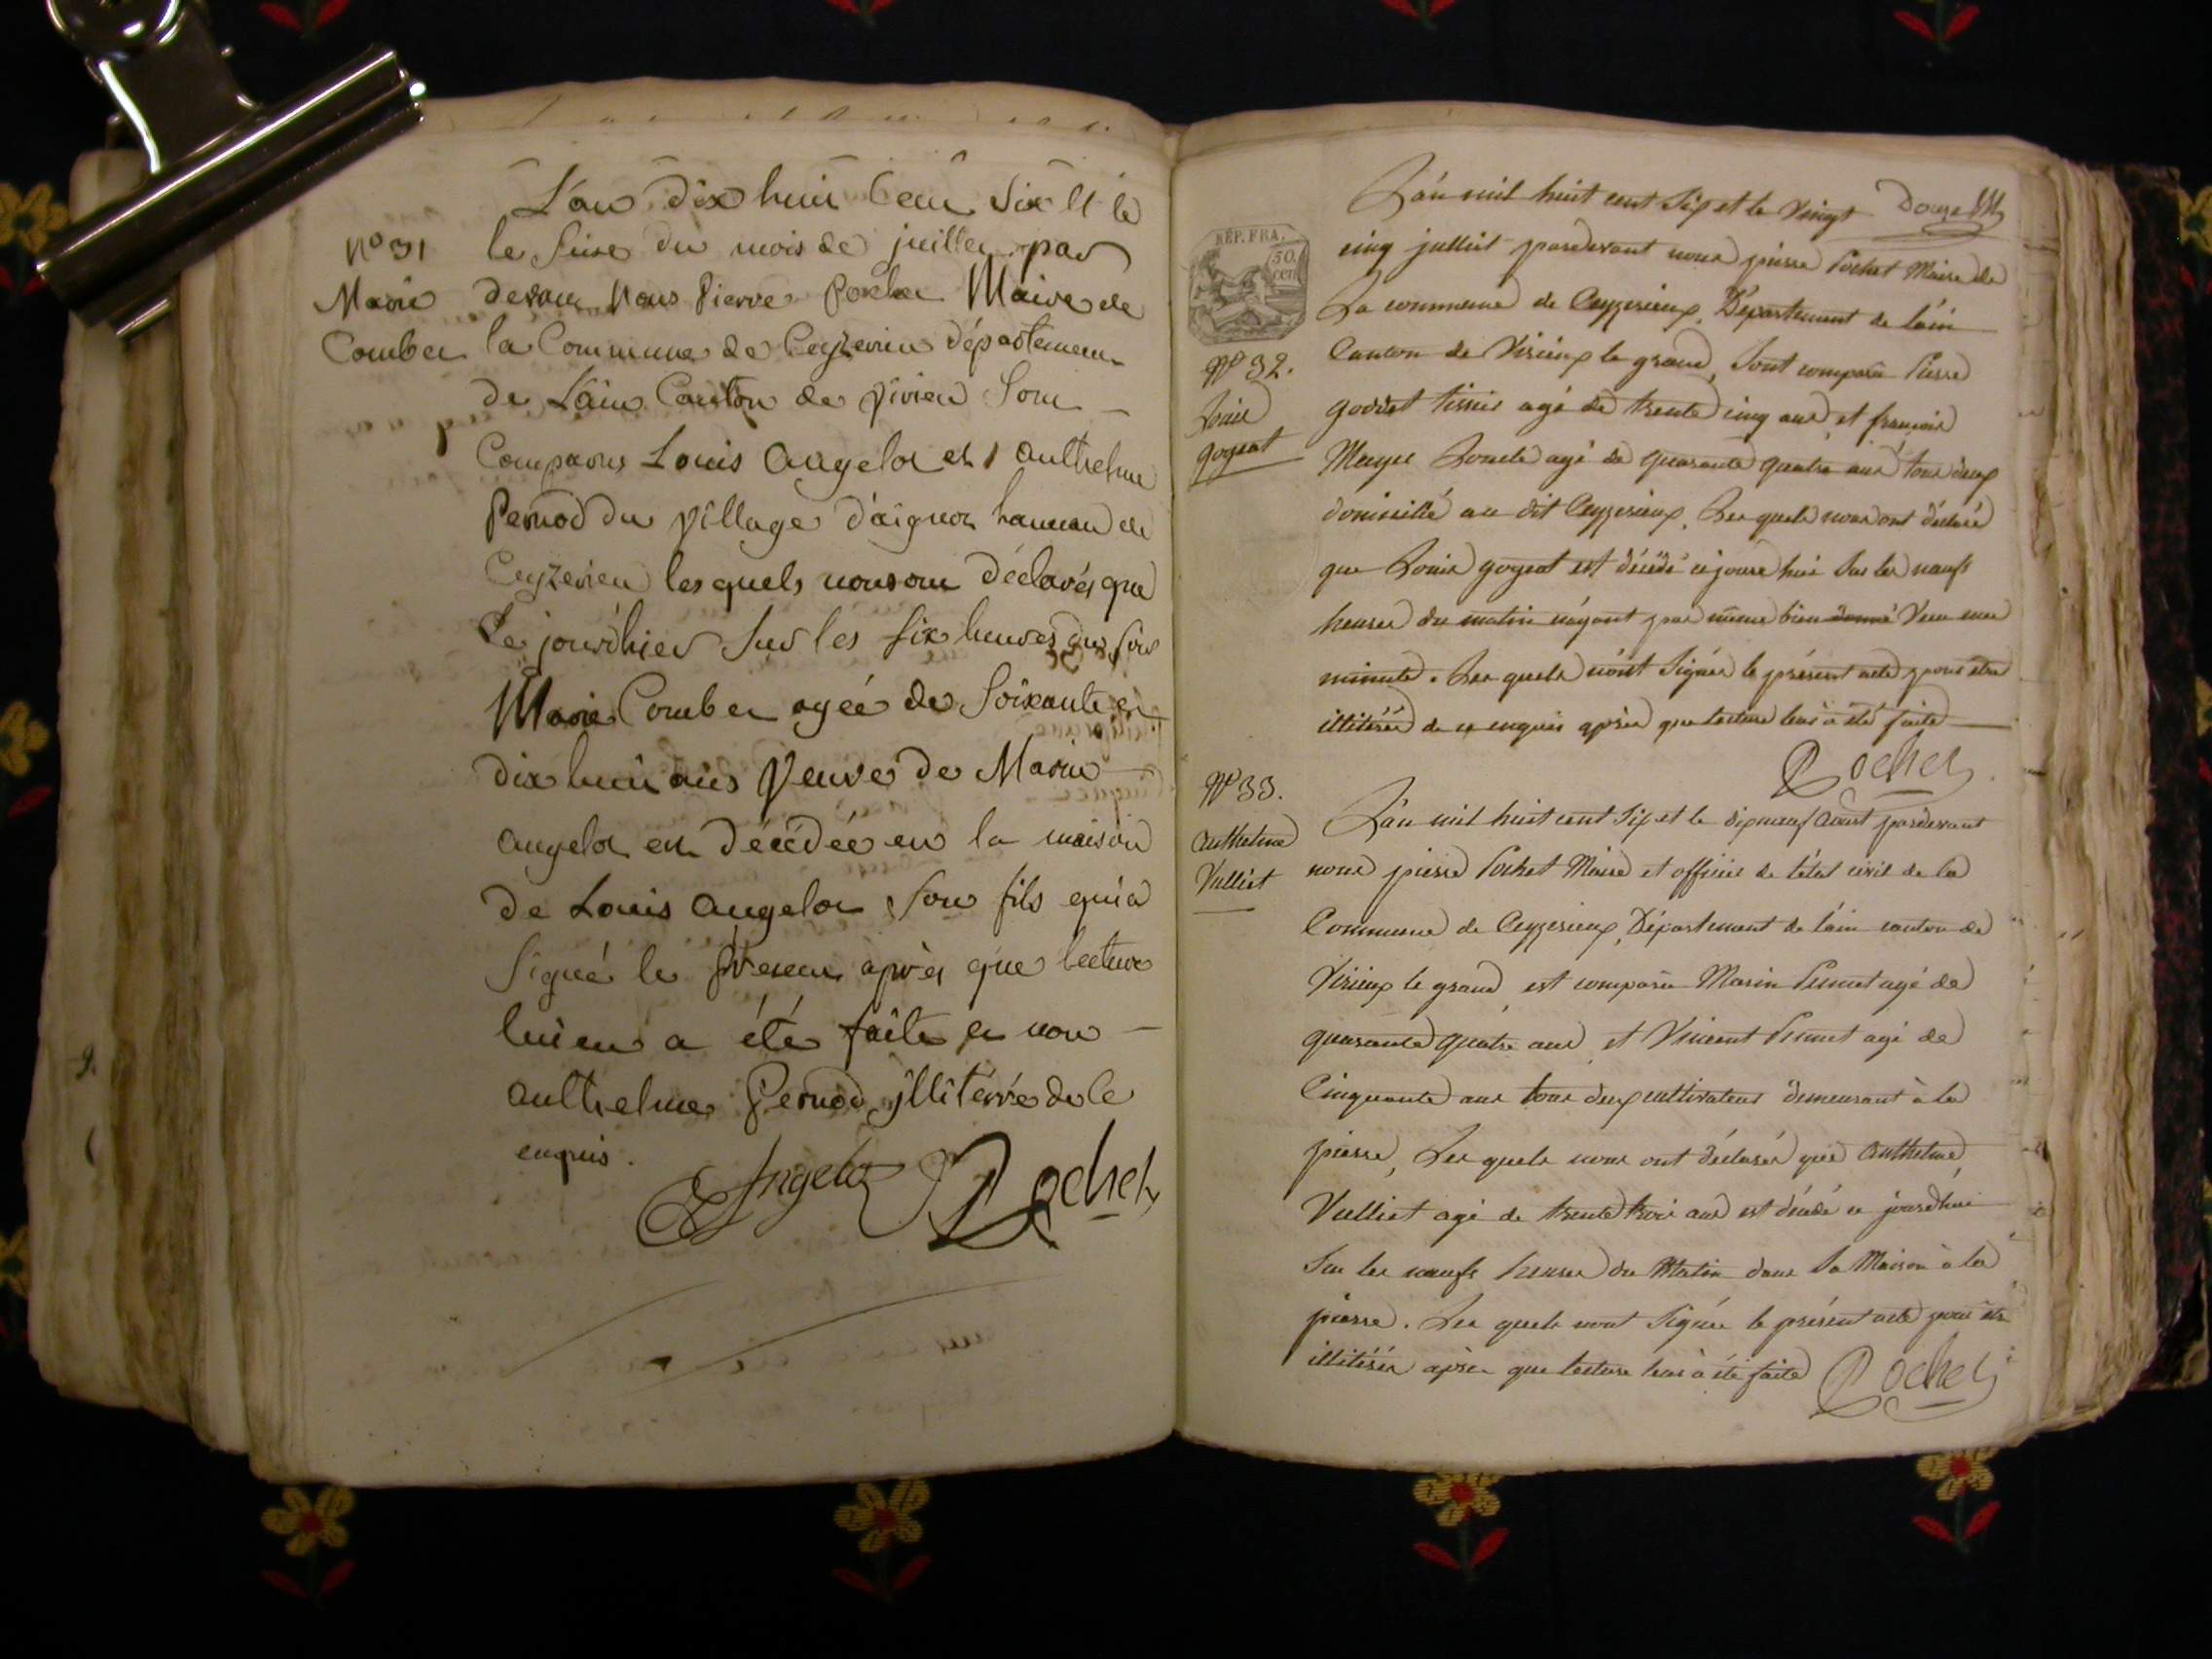 L'an dix huit Cent Six et le
le seise du mois de juillet par
devant Nous Pierre Pochet Maire de
la Commune de Ceyzerieu département
de L'ain Canton de Virieu Sont
Comparus Louis Angelot et anthelme
Pernod du village d'aignoz hameau de
Ceyzerieu lesquels nous ont déclarés que
Ce jourd'hier sur les six heures du soir
Marie Combet agée de Soixante et
dix huit ans Veuve de Marin
Angelot est décédée en la maison
de Louis Angelot son fils qui a
signé le présent après que lecture
lui en a été faite et non
anthelme Pernod illitérré de ce
enquis.
Angelot Pochet
N° 31
Marie
Combet
Douze
L'an mil huit cent six et le vingt
cinq julliet pardevant nous pierre Pochet Maire de
La commune de Ceyzerieux, Département de l'ain
Canton de Virieux le grand, Sont comparu Pierre
goddet tissier agé de trente cinq ans, et françois
agé de quarante quatre ans tous deux
domicillé au dit Ceyzerieux. Les quels nous ont déclaré
que Louis gojeat est décédé ce jourd'hui Sur les neufs
heures du matin n'ayant pas même bien donné Vecu une
minute. Les quels n'ont Signés le présent acte pour etre
illitérés de ce enquis après que lecture leur a été faite
Pochet
REP. FRA.
50
cen
N° 32.
Louis
gojeat
N° 33.
Anthelme
Vulliet
L'an mil huit cent Six et le dixneuf Aoust pardevant
nous pierre Pochet Maire et officier de l'état civil de la
Commune de Ceyzerieux, Département de l'ain canton de
Virieux le grand est comparu Marin agé de
quarante quatre ans, et Vincent agé de
Cinquante ans tous deux cultivateurs demeurant à la
pierre, Les quels nous ont déclarés que Anthelme
Vulliet agé de trente trois ans est décédé ce jourd'hui
Sur les neufs heures du Matin dans Sa Maison à la
pierre. Les quels n'ont Signés le présent acte pour etre
illitérés après que lecture leur a été faite
Pochet